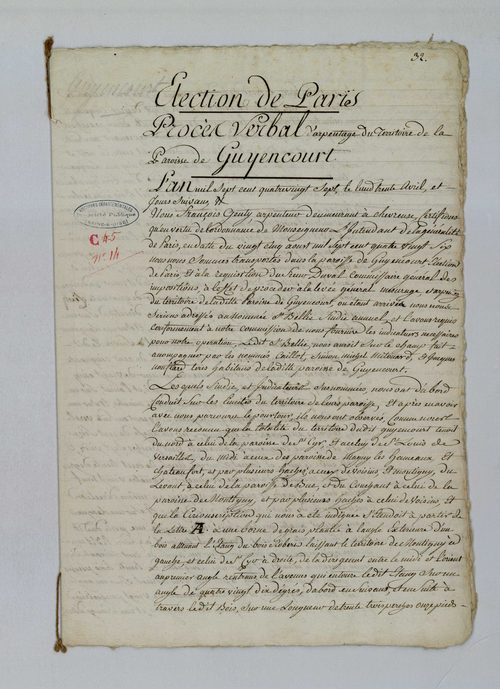 32.
Election de Paris
Procès Verbal d'arpentage du Territoire de la
Paroisse de Guyencourt
L'an mil Sept cent quatrevingt Sept, le lundi trente Avril, et
Jours Suivans
Nous François arpenteur demeurant à chevreuse Certifions
qu'en vertu de l'ordonnance de Monseigneur l'Intendant de la généralité
de Paris, en datte du vingt cinq aout mil Sept cent quatre vingt
nous nous Sommes transportés dans la paroisse de Guyencourt Election
de Paris et à la requisition du Sieur Duval Commissaire général des
impositions, à l'effet de procéder à la levée général mesurage
du territoire de laditte Paroisse de Guyencourt, ou étant arrivés nous nous
Serions adressés au nommé Bellie Sindic annuel et l'avons requis
Conformément à notre Commission de nous fournir les indicateurs nécessaires
pour notre opération, Ledit St Bellie, nous auroit Sur le champ fait
accompagner par les nommés Caillot, Simon michel et Jacques
tous habitans de laditte paroisse de Guyencourt.
Lesquels Sindic, et Indicateurs Susnommés, nous ont d'abord
Conduit Sur les limites du territoire de leur paroisse, et après nous avoir
avec nous parcouru le pourtour, ils nous ont observés Comme nous
l'avons reconnu que la totalité du territoire dudit guyencourt tenoit
du nord à celui de la paroisse de St Cyr, et au de St Louis de
Versailles, du midi à ceux des paroisses de Magny les hameaux et
chateaufort, et par plusieurs haches à ceux de Voisins et montigny, du
Levant à celui de la paroisse de Buc, et du Couchant à celui de la
paroisse de Montigny, et par plusieurs haches à celui de Voisins, et
que la Circonscription qui nous a été indiquée S'étendoit à partir de
la Lettre A à une borne de grais, plantée à l'angle extérieur d'un
bois attenant l'Etang du bois Robert laissant le territoire de Montigny à
gauche, et celui de St Cyr à droite, de la dirigeant entre le midi et l'orient
au premier angle rentrant de l'avenue qui entoure ledit Etang Sur un
angle de quatre vingt dix degrés, d'abord en Suivant, et ensuite à
travers ledit Bois, Sur une Longueur de trente trois perches onze pieds
ARCHIVES DEPARTEMENTALES
SEINE-&-OISE
C 45
n° 14